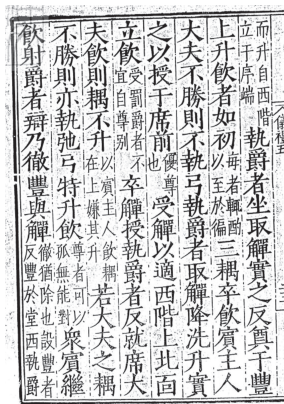 而升自西階立于序端執爵者坐取觶實之反奠于豐
上升飲者如初每者輒酌以至於徧三耦卒飲賓主人
大夫不勝則不執弓執爵者取觶降洗升實
之以授于席前優尊也受觶以適西階上北面
立飲受罰爵者不宜自尊别卒觶授執爵者反就席大
夫飲則耦不升以賓主人飲耦在上嫌其升若大夫之耦
不勝則亦執弛弓特升飲尊者可以孤無能對衆賓繼
飲射爵者辯乃徹豐與觶徹猶除也設豐者反豐於堂西執爵